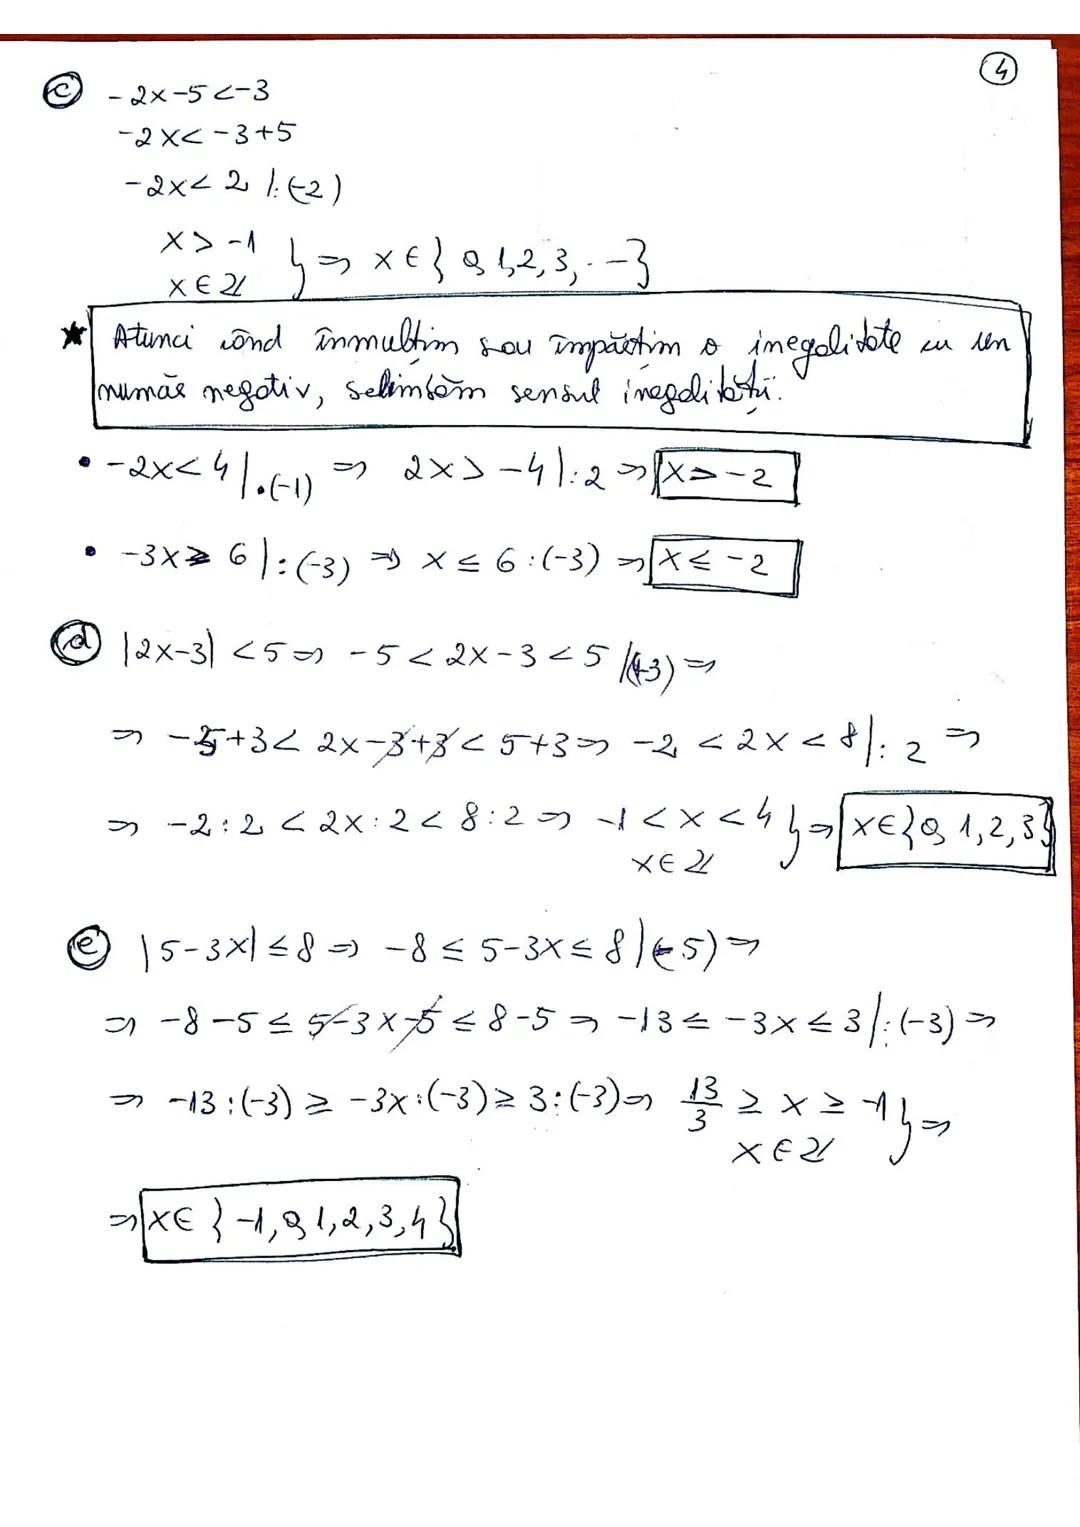 4
c -2x-5<-3
-2x<-3+5
-2x<2 |:(-2)
x>-1
x∈ℤ } ⇒ x∈{0,1,2,3,...}
★ Atunci când înmulțim sau împărțim o inegalitate cu un
număr negativ, schimbăm sensul inegalității.
• -2x<4|·(-1) ⇒ 2x>-4|:2 ⇒ x>-2
• -3x≥6|:(-3) ⇒ x≤6:(-3) ⇒ x≤-2
d |2x-3|<5 ⇒ -5<2x-3<5 |(+3) ⇒
⇒ -5+3<2x-3+3<5+3 ⇒ -2<2x<8|:2 ⇒
⇒ -2:2<2x:2<8:2 ⇒ -1<x<4 } ⇒ x∈{0,1,2,3}
x∈ℤ
e |5-3x|≤8 ⇒ -8≤5-3x≤8|(-5) ⇒
⇒ -8-5≤5-3x-5≤8-5 ⇒ -13≤-3x≤3|:(-3) ⇒
⇒ -13:(-3)≥-3x:(-3)≥3:(-3) ⇒ 13/3≥x≥-1 } ⇒
x∈ℤ
⇒ x∈{-1,0,1,2,3,4}